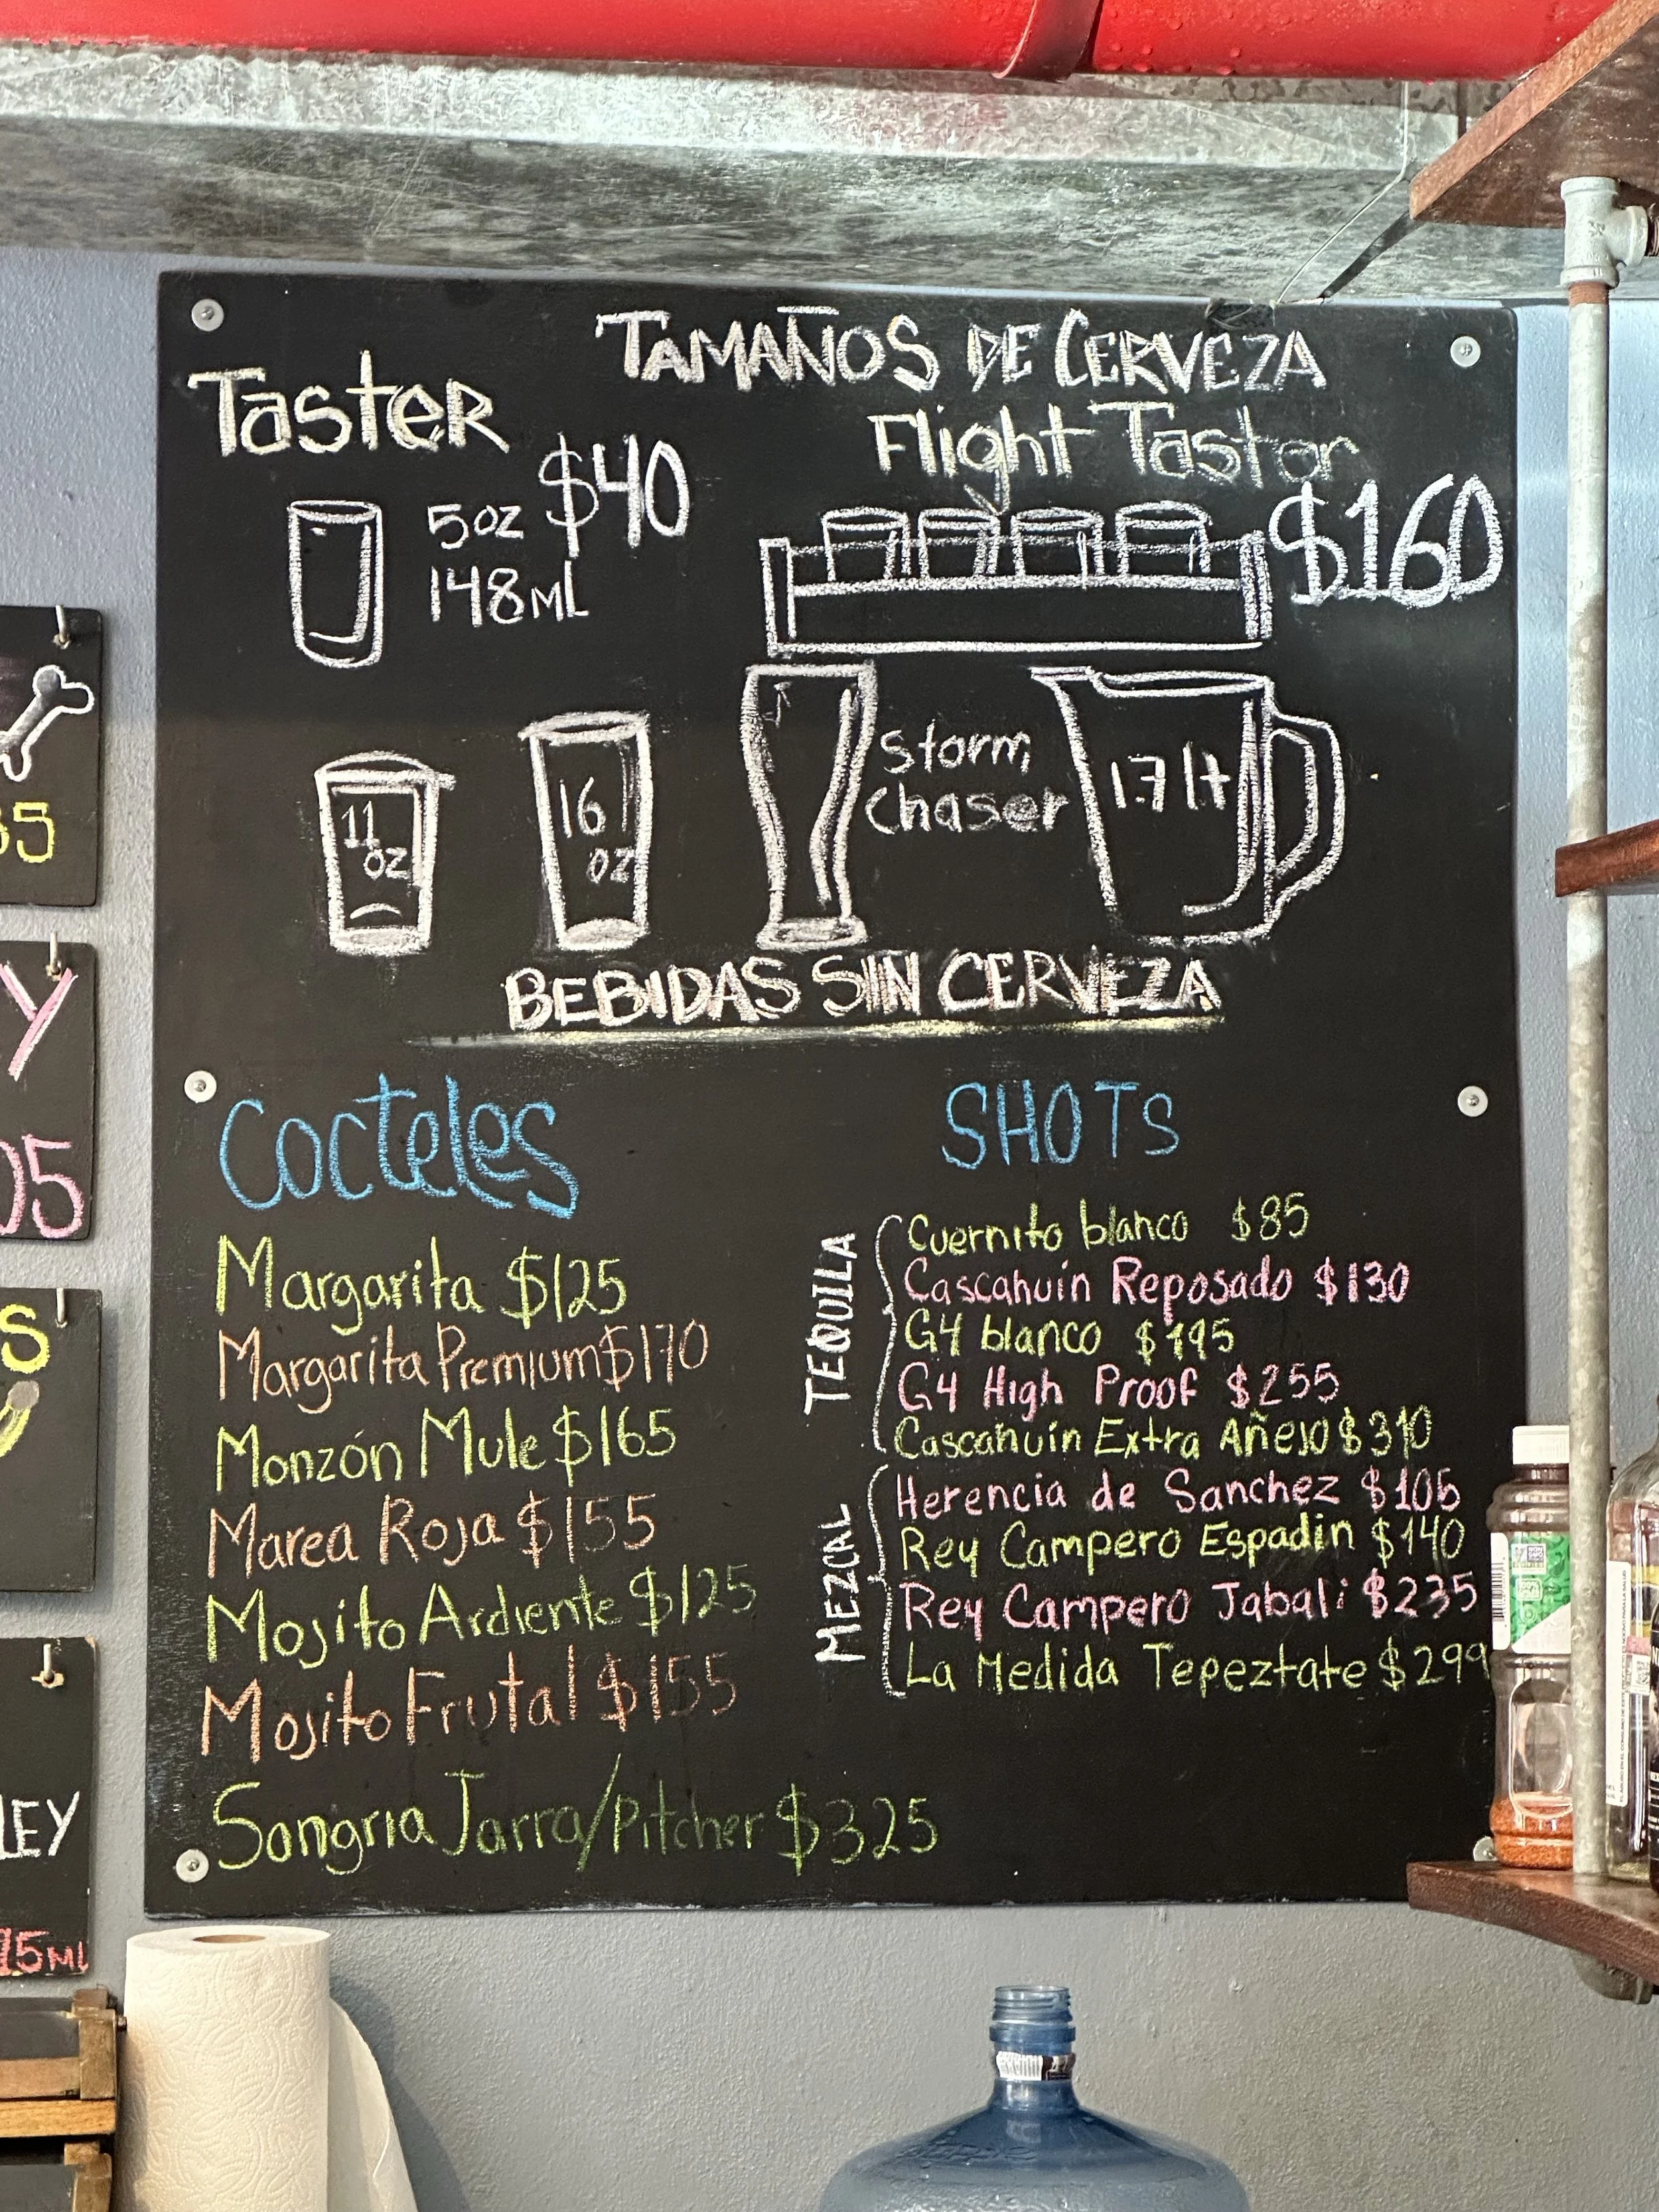 TAMAÑOS DE CERVEZA
TasteR
$40
5oz
148ML
Flight Taster
$160
11
oz
16
oz
Storm
Chaser
1.7 lt
BEBIDAS SIN CERVEZA
Cocteles
Margarita $125
Margarita Premium $170
Monzón Mule $165
Marea Roja $155
Mojito Ardiente $125
Mojito Frutal $155
Sangria Jarra/Pitcher $325
SHOTS
TEQUILA
Cuernito blanco $85
Cascahuín Reposado $130
G4 blanco $195
G4 High Proof $255
Cascahuín Extra Añejo $310
MEZCAL
Herencia de Sanchez $105
Rey Campero Espadin $140
Rey Campero Jabali $235
La Medida Tepeztate $299
35
Y
05
S
LEY
ML